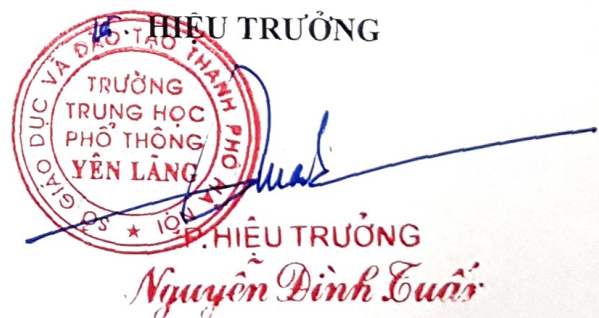 HIỆU TRƯỞNG
SỞ GIÁO DỤC VÀ ĐÀO TẠO THÀNH PHỐ HÀ NỘI
TRƯỜNG
TRUNG HỌC
PHỔ THÔNG
YÊN LÃNG
P.HIỆU TRƯỞNG
Nguyễn Đình Tuấn